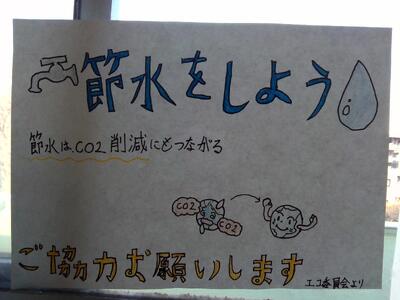 節水をしよう
節水はCO2削減にもつながる
CO2 CO2
ご協力お願いします
エコ委員会より